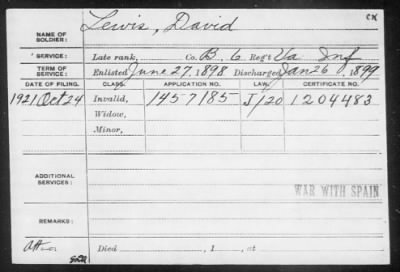 CK
NAME OF SOLDIER: Lewis, David
SERVICE: Late rank, Co. B, 6 Reg't Va Inf
TERM OF SERVICE: Enlisted June 27, 1898 Discharged Jan 26, 1899
DATE OF FILING. CLASS. APPLICATION NO. LAW. CERTIFICATE NO.
1921 Oct 24 Invalid, 1457185 J/20 1204483
Widow,
Minor,
ADDITIONAL SERVICES:
WAR WITH SPAIN
REMARKS:
Died , 1 , at